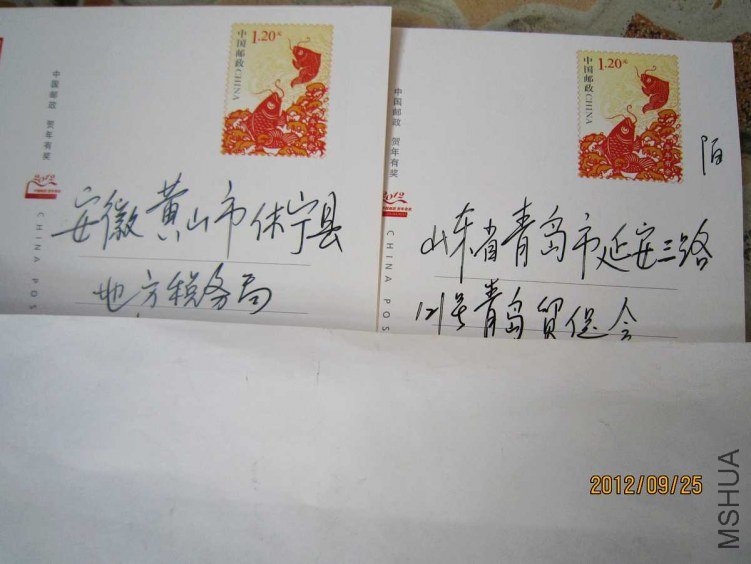 中国邮政
CHINA
1.20元
中国邮政 贺年有奖
2012
CHINA POS
安徽黄山市休宁县
地方税务局
中国邮政
CHINA
1.20元
中国邮政 贺年有奖
2012
CHINA POS
陌
山东省青岛市延安三路
121号青岛貿促会
2012/09/25
MSHUA